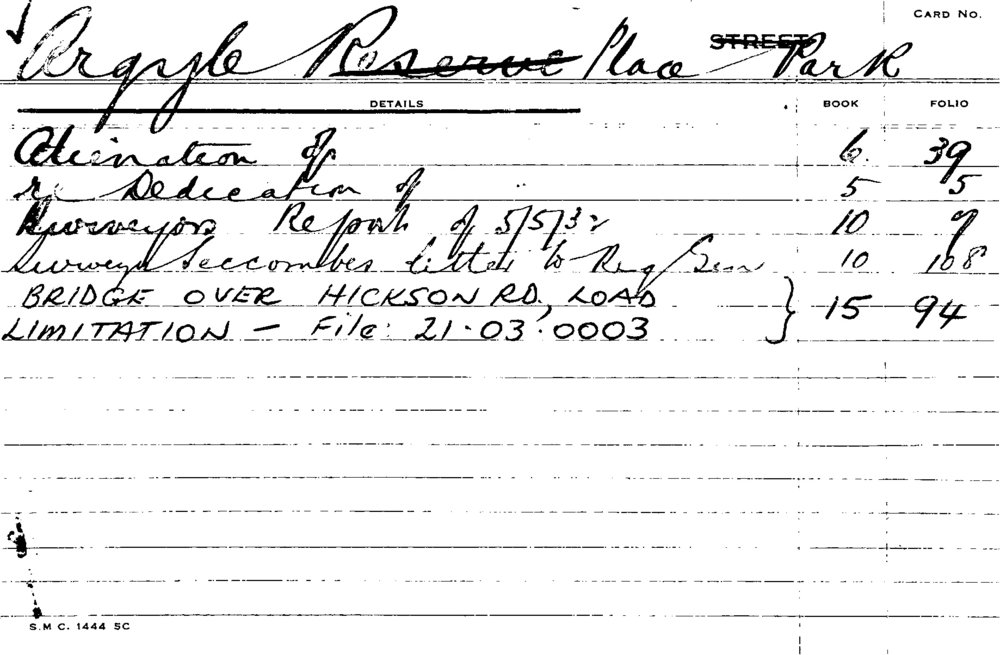 CARD No.
Argyle Reserve Place Park
STREET
DETAILS BOOK FOLIO
Alienation of 6 39
re Dedication of 5 5
Surveyors Report of 5/5/32 10 9
Surveyor Seccombes letter to Reg/Gen 10 108
BRIDGE OVER HICKSON RD., LOAD
LIMITATION - File: 21.03.0003 } 15 94
S.M C. 1444 5C